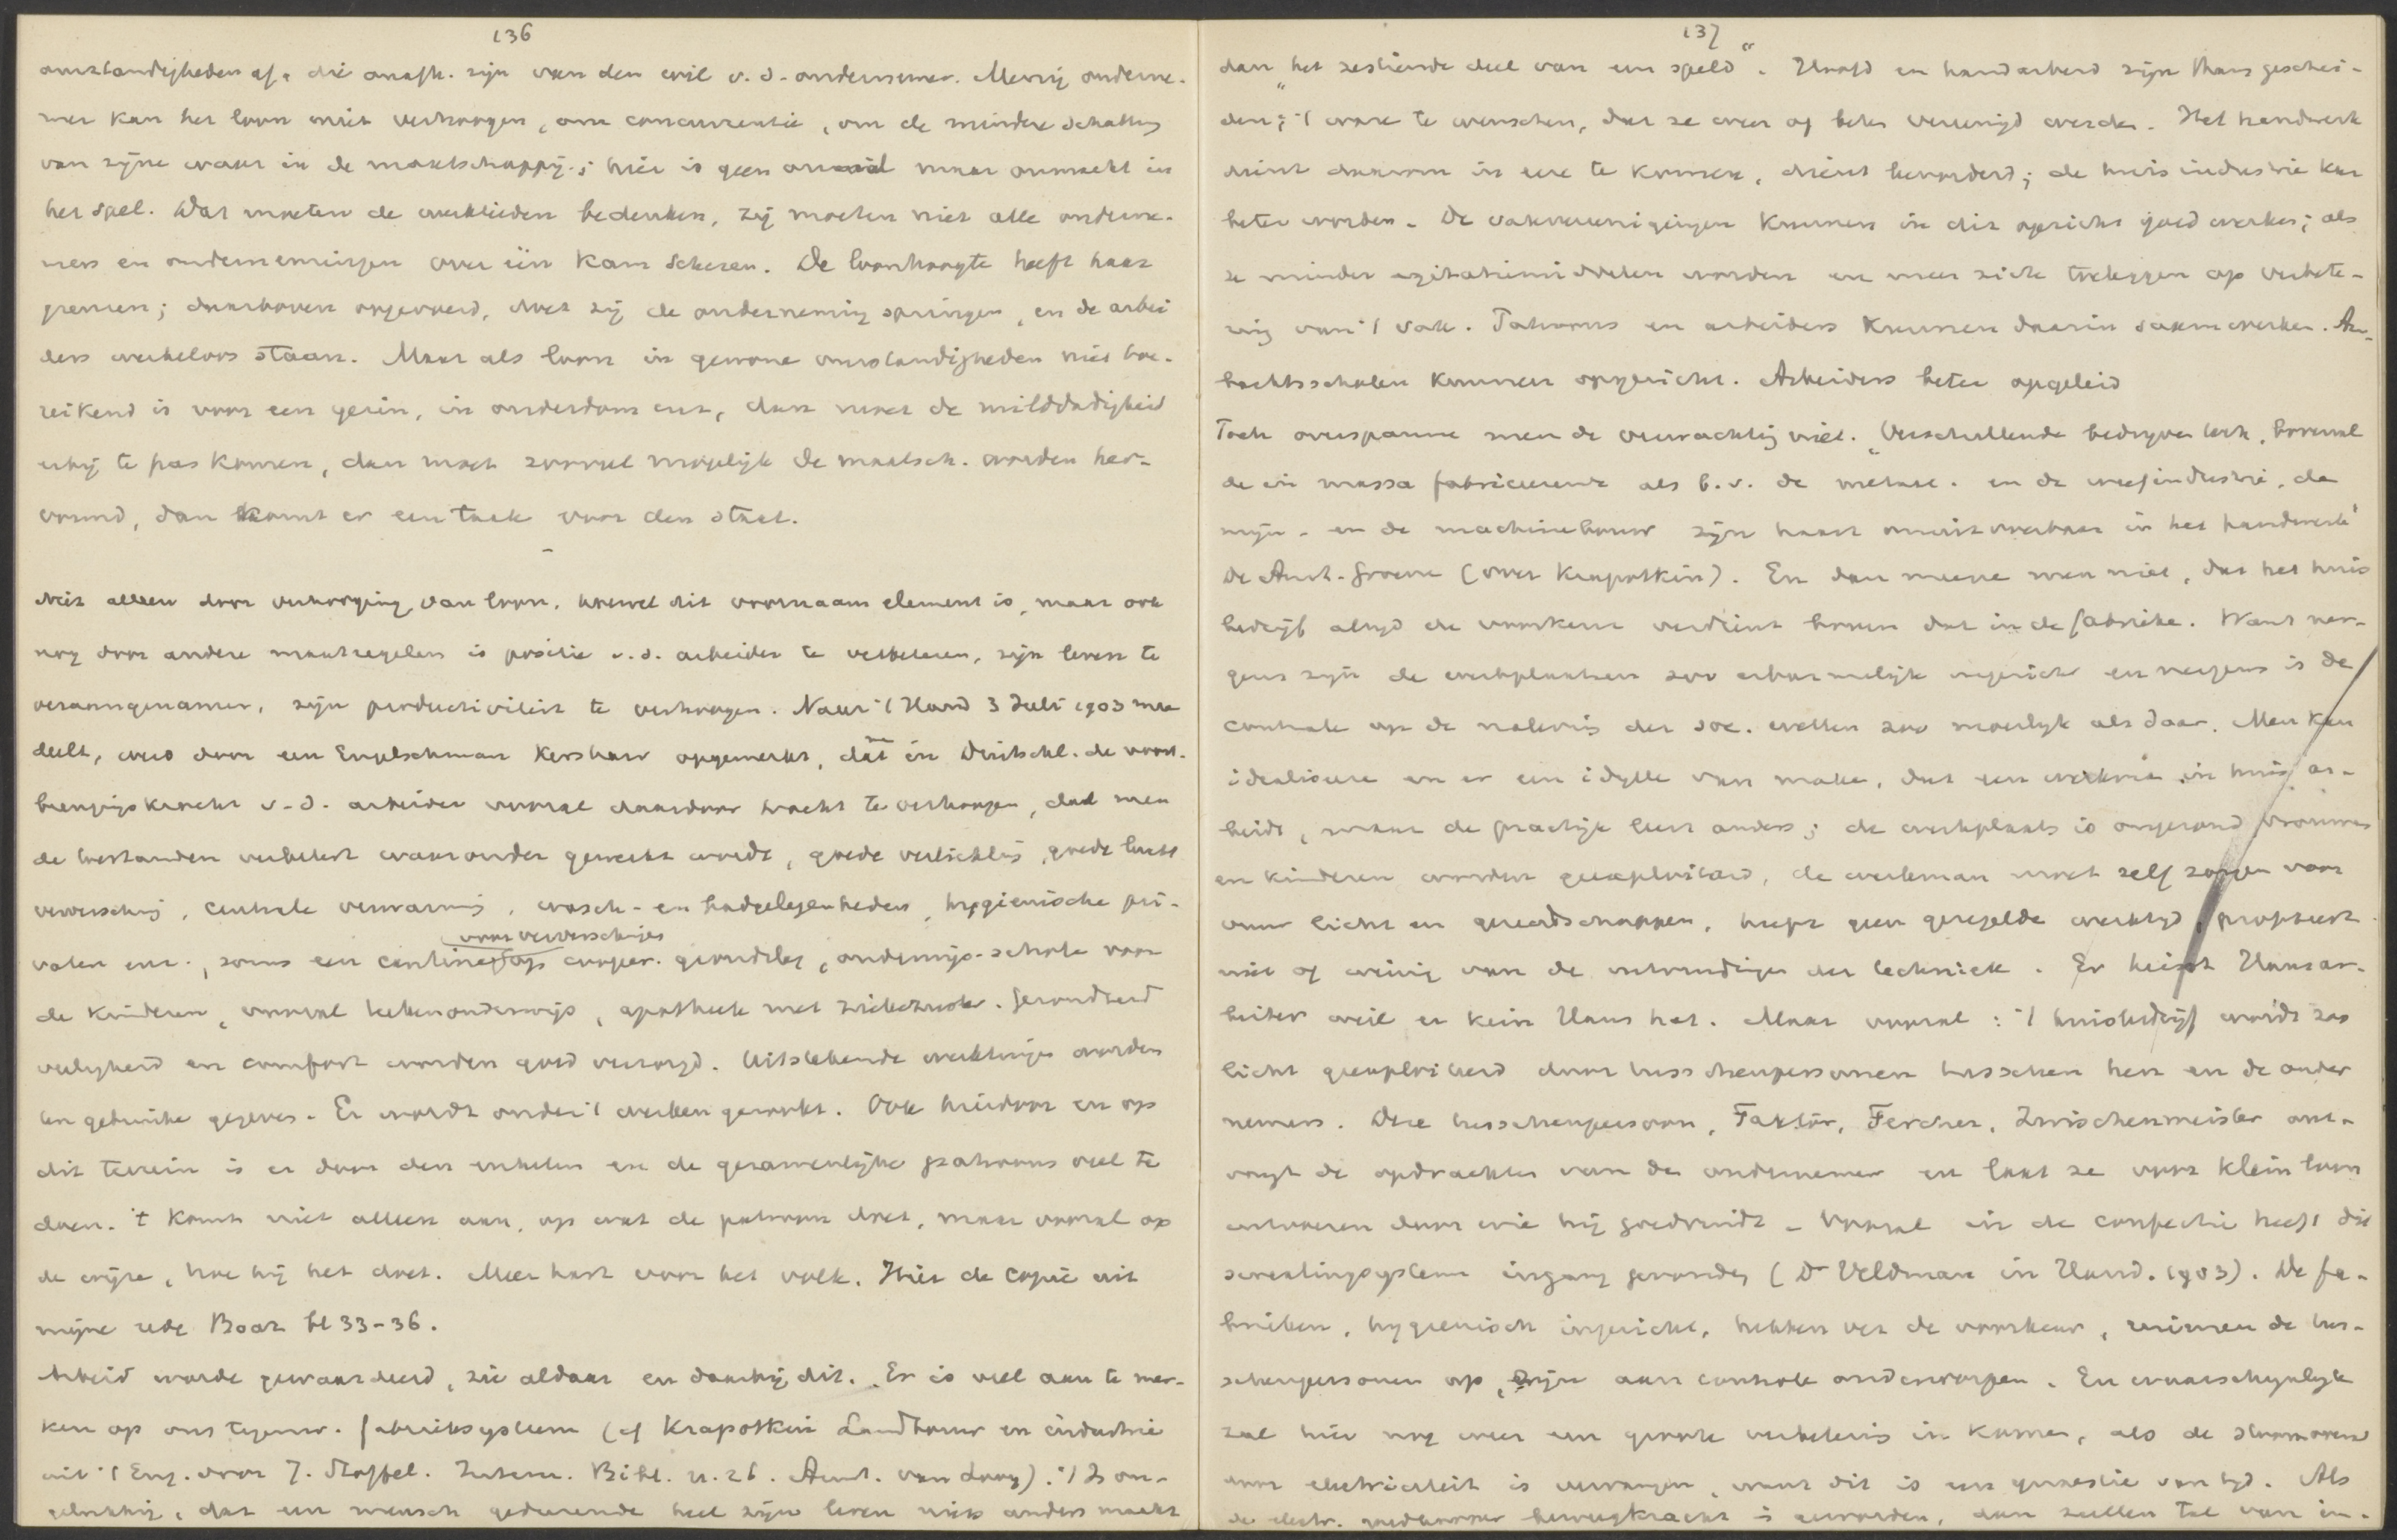 136
omstandigheden af, die onafh. zijn van den wil v. d. ondernemer. Menig onderne-
mer kan het loon niet verhoogen, om concurrentie, om de mindere schatting
van zijne waar in de maatschappij; hier is geen onwil maar onmacht in
het spel. Dat moeten de werklieden bedenken, zij moeten niet alle onderne-
mers en ondernemingen over één kam scheren. De loonhoogte heeft haar
grenzen; daarboven opgevoerd, doet zij de onderneming springen, en de arbei
ders werkeloos staan. Maar als loon in gewone omstandigheden niet toe-
reikend is voor een gezin, in ouderdom enz, dan moet de milddadigheid
erbij te pas komen, dan moet zooveel mogelijk de maatsch. worden her-
vormd, dan komt er een taak voor den staat.
Niet alleen door verhooging van loon, hoewel dit voornaam element is, maar ook
nog door andere maatregelen is positie v. d. arbeider te verbeteren, zijn leven te
veraangenamen, zijn productiviteit te verhoogen. Naar 't Hand 3 Juli 1903 mee
deelt, werd door een Engelschman Kershaw opgemerkt, dat men in Duitschl. de voort-
brengingskracht v. d. arbeider vooral daardoor tracht te verhoogen, dat men
de toestanden verbetert waaronder gewerkt wordt, goede verlichting, goede lucht
verversching, centrale verwarming, wasch- en badgelegenheden, hygienische pri-
vaten enz., soms een cantine voor ververschingen op cooper. grondslag, onderwijs-schole voor
de kinderen, vooral tekenonderwijs, apotheek met ziekezuster. Gezondheid
veiligheid en comfort worden goed verzorgd. Uitstekende werktuigen worden
ten gebruike gegeven. Er wordt onder 't werken gerookt. Ook hierdoor en op
dit terrein is er door den enkelen en de gezamenlijke patroons veel te
doen. 't Komt niet alleen aan, op wat de patroon doet, maar vooral op
de wijze, hoe hij het doet. Meer hart voor het volk. Hier de copie uit
mijne rede Boaz bl 33-36.
Arbeid worde gewaardeerd, zie aldaar en daarbij dit. Er is veel aan te mer-
ken op ons tegenw. fabrieksysteem (cf Krapotkin Landbouw en industrie
uit 't Eng. door J. Stoffel. Intern. Bibl. n. 26. Amst. van Looy). 't Is on-
gelukkig, dat een mensch gedurende heel zijn leven niets anders maakt
137
dan „het zestiende deel van een speld". Hoofd en handarbeid zijn thans geschei-
den; 't ware te wenschen, dat ze weer of beter vereenigd werden. Het handwerk
dient daarom in eere te komen, dient bevorderd; de huisindustrie kan
beter worden. De vakvereenigingen kunnen in dit opzicht goed werken; als
ze minder agitatiemiddelen worden en meer zich toeleggen op verbete-
ring van 't vak. Patroons en arbeiders kunnen daarin saamwerken. Am-
bachtsscholen kunnen opgericht. Arbeiders beter opgeleid
Toch overspanne men de verwachting niet. „Verschillende bedrijven toch, vooral
de in massa fabriceerende als b.v. de metaal- en de weefindustrie, de
mijn- en de machinebouw zijn haast onuitvoerbaar in het handwerk"
De Amst. Groene (over Krapotkin). En dan meene men niet, dat het huis
bedrijf altijd de voorkeur verdient boven dat in de fabrieke. Want ner-
gens zijn de werkplaatsen zoo erbarmelijk ingericht en nergens is de
controle op de naleving der soc. wetten zoo moeilijk als daar. Men kan
idealiseere en er een idylle van make, dat een werkman in huis ar-
beidt, maar de practijk leert anders; de werkplaats is ongezond vrouwen
en kinderen worden geexploiteerd, de werkman moet zelf zorgen voor
vuur licht en gereedschappen, heeft geen geregelde werktijd, profiteert
niet of weinig van de uitvindingen der techniek. Er heisst Hausar-
beiter weil er kein Haus hat. Maar vooral: 't huisbedrijf wordt zoo
licht geexploiteerd door tusschenpersonen tusschen hen en de onder
nemers. Deze tusschenpersoon, Faktor, Fercher, Zwischenmeister ont-
vangt de opdrachten van de ondernemer en laat ze voor klein loon
uitvoeren door wie hij goedvindt. Vooral in de confectie heeft dit
sweatingsysteem ingang gevonden (Dr Veldman in Hand. 1903). De fa-
brieken, hygienisch ingericht, hebben ver de voorkeur, ruimen de tus-
schenpersonen op, zijn aan controle onderworpen. En waarschijnlijk
zal hier nog weer een groote verbetering in komen, als de stoommotor
door electriciteit is vervangen, want dit is een quaestie van tijd. Als
de electr. goedkoope beweegkracht is geworden, dan zullen tal van in-